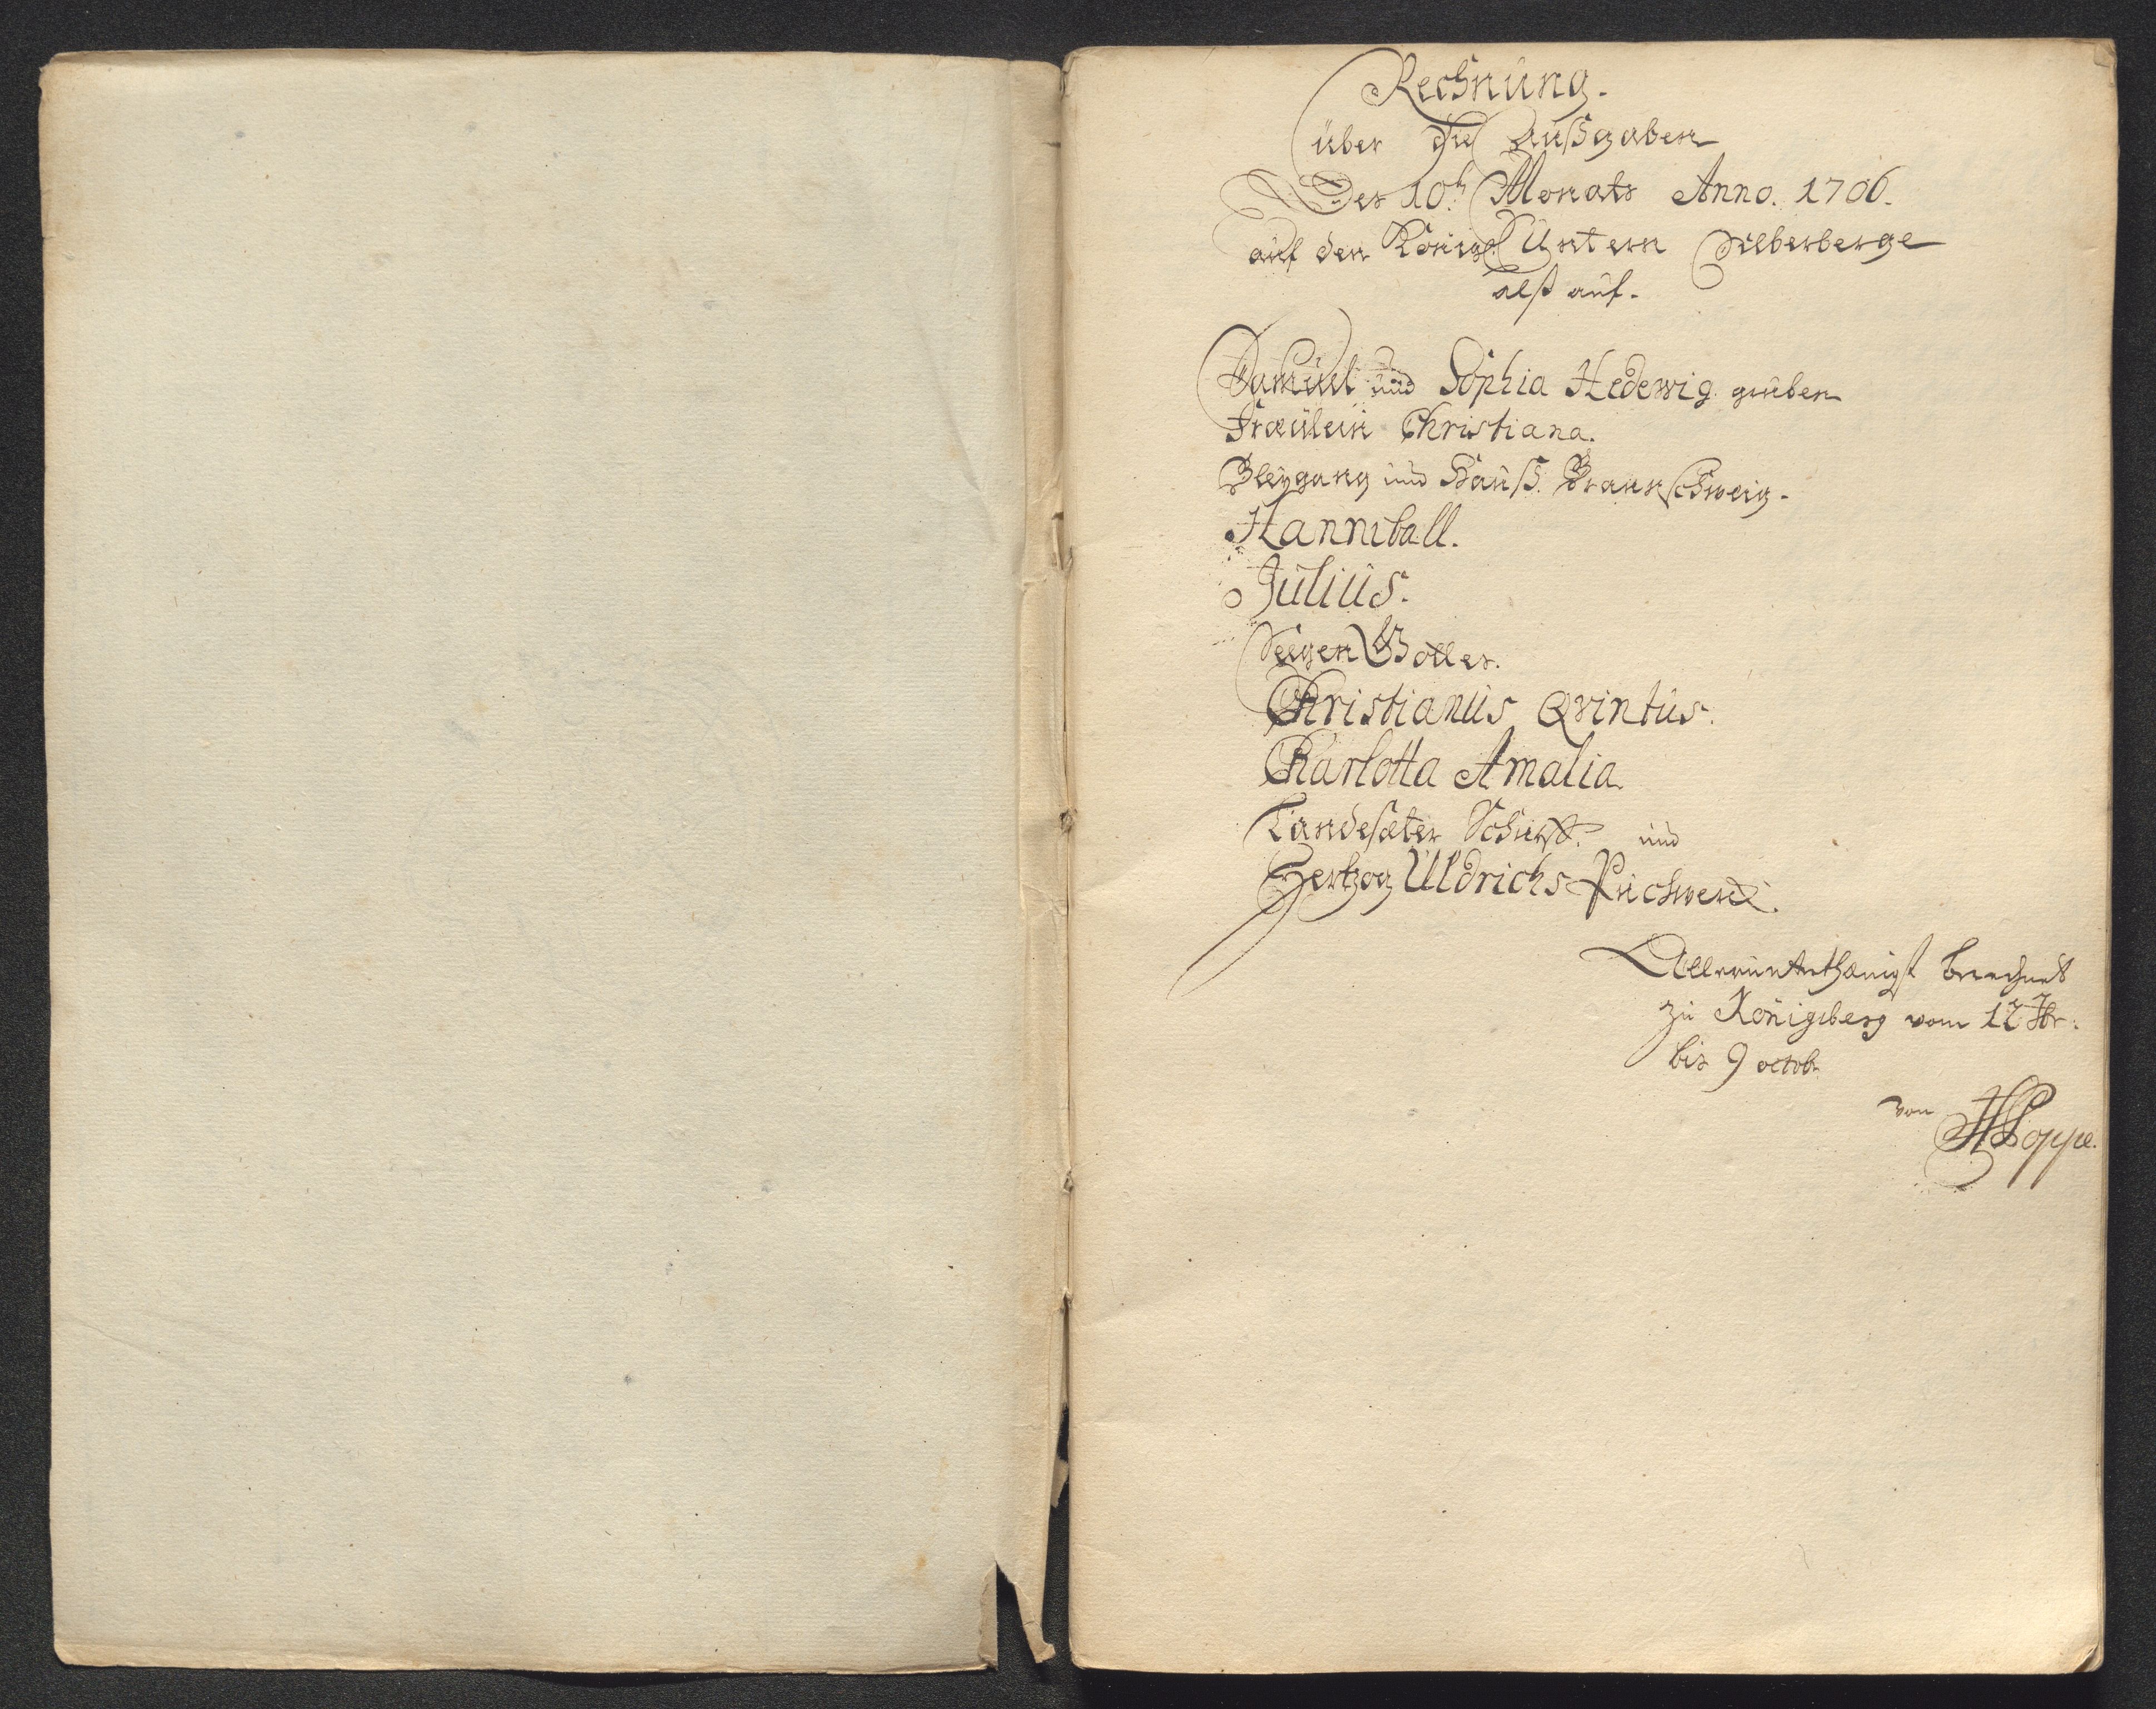 Rechnung.
über die Außgaben
Des 10t Monats Anno. 1706.
auf den Königl. Untern Silberberge
alß auf.
Samuel und Sophia Hedewig gruben
Fræulein Christiana.
Bleygang und Hauß. Braunschweig.
Hanniball.
Julius.
Seegen Gottes.
Christianus Qvintus.
Charlotta Amalia.
Landesæter Schurff. und
Hertzog Uldrichs Puchwerck.
Allerunterthänigst berechnet
zu Königsberg vom 12 7br:
bis 9 octobr
von HPoppe.